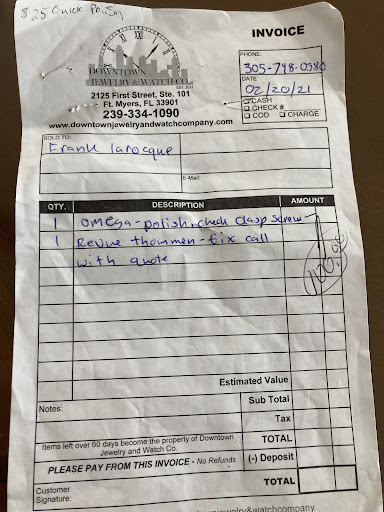 $25 Quick Polish
DOWNTOWN
JEWELRY & WATCH CO.
2125 First Street, Ste. 101
Ft. Myers, FL 33901
239-334-1090
www.downtownjewelryandwatchcompany.com
INVOICE
PHONE:
305-748-0380
DATE
02/20/21
CASH
CHECK #
COD CHARGE
SOLD TO:
Frank larocque
E-Mail:
QTY. DESCRIPTION AMOUNT
1 omega - polish, check clasp screw
1 Revue thommen - fix call
with quote
Estimated Value
Notes:
Sub Total
Tax
Items left over 60 days become the property of Downtown
Jewelry and Watch Co.
TOTAL
PLEASE PAY FROM THIS INVOICE - No Refunds
(-) Deposit
Customer
Signature:
TOTAL